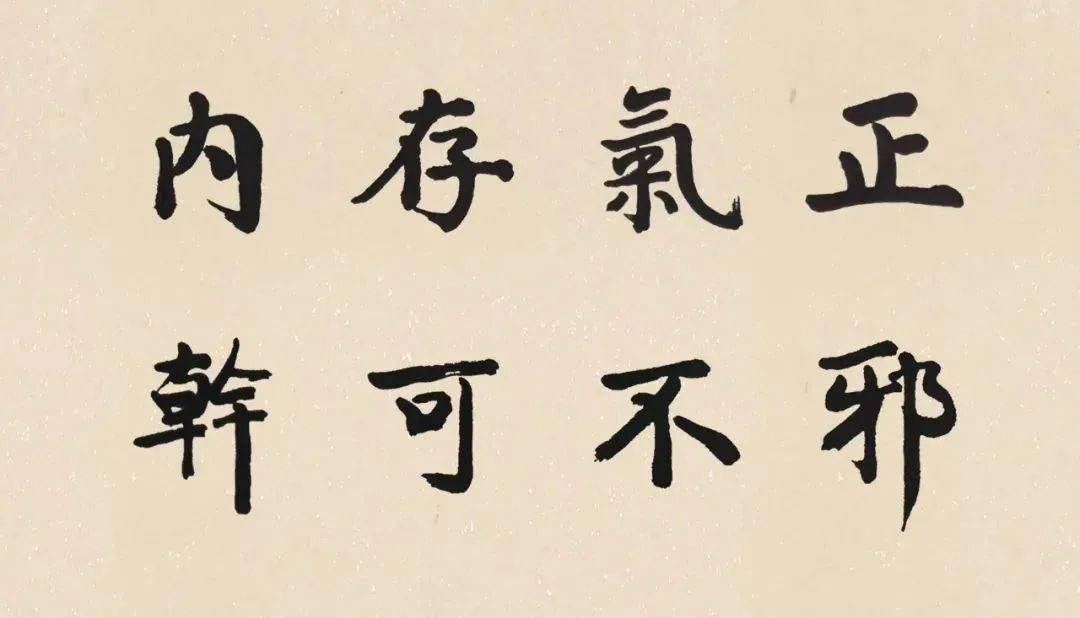 正氣存内
邪不可幹